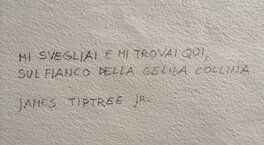 MI SVEGLIAI E MI TROVAI QUI,
SUL FIANCO DELLA GELIDA COLLINA
JAMES TIPTREE JR.